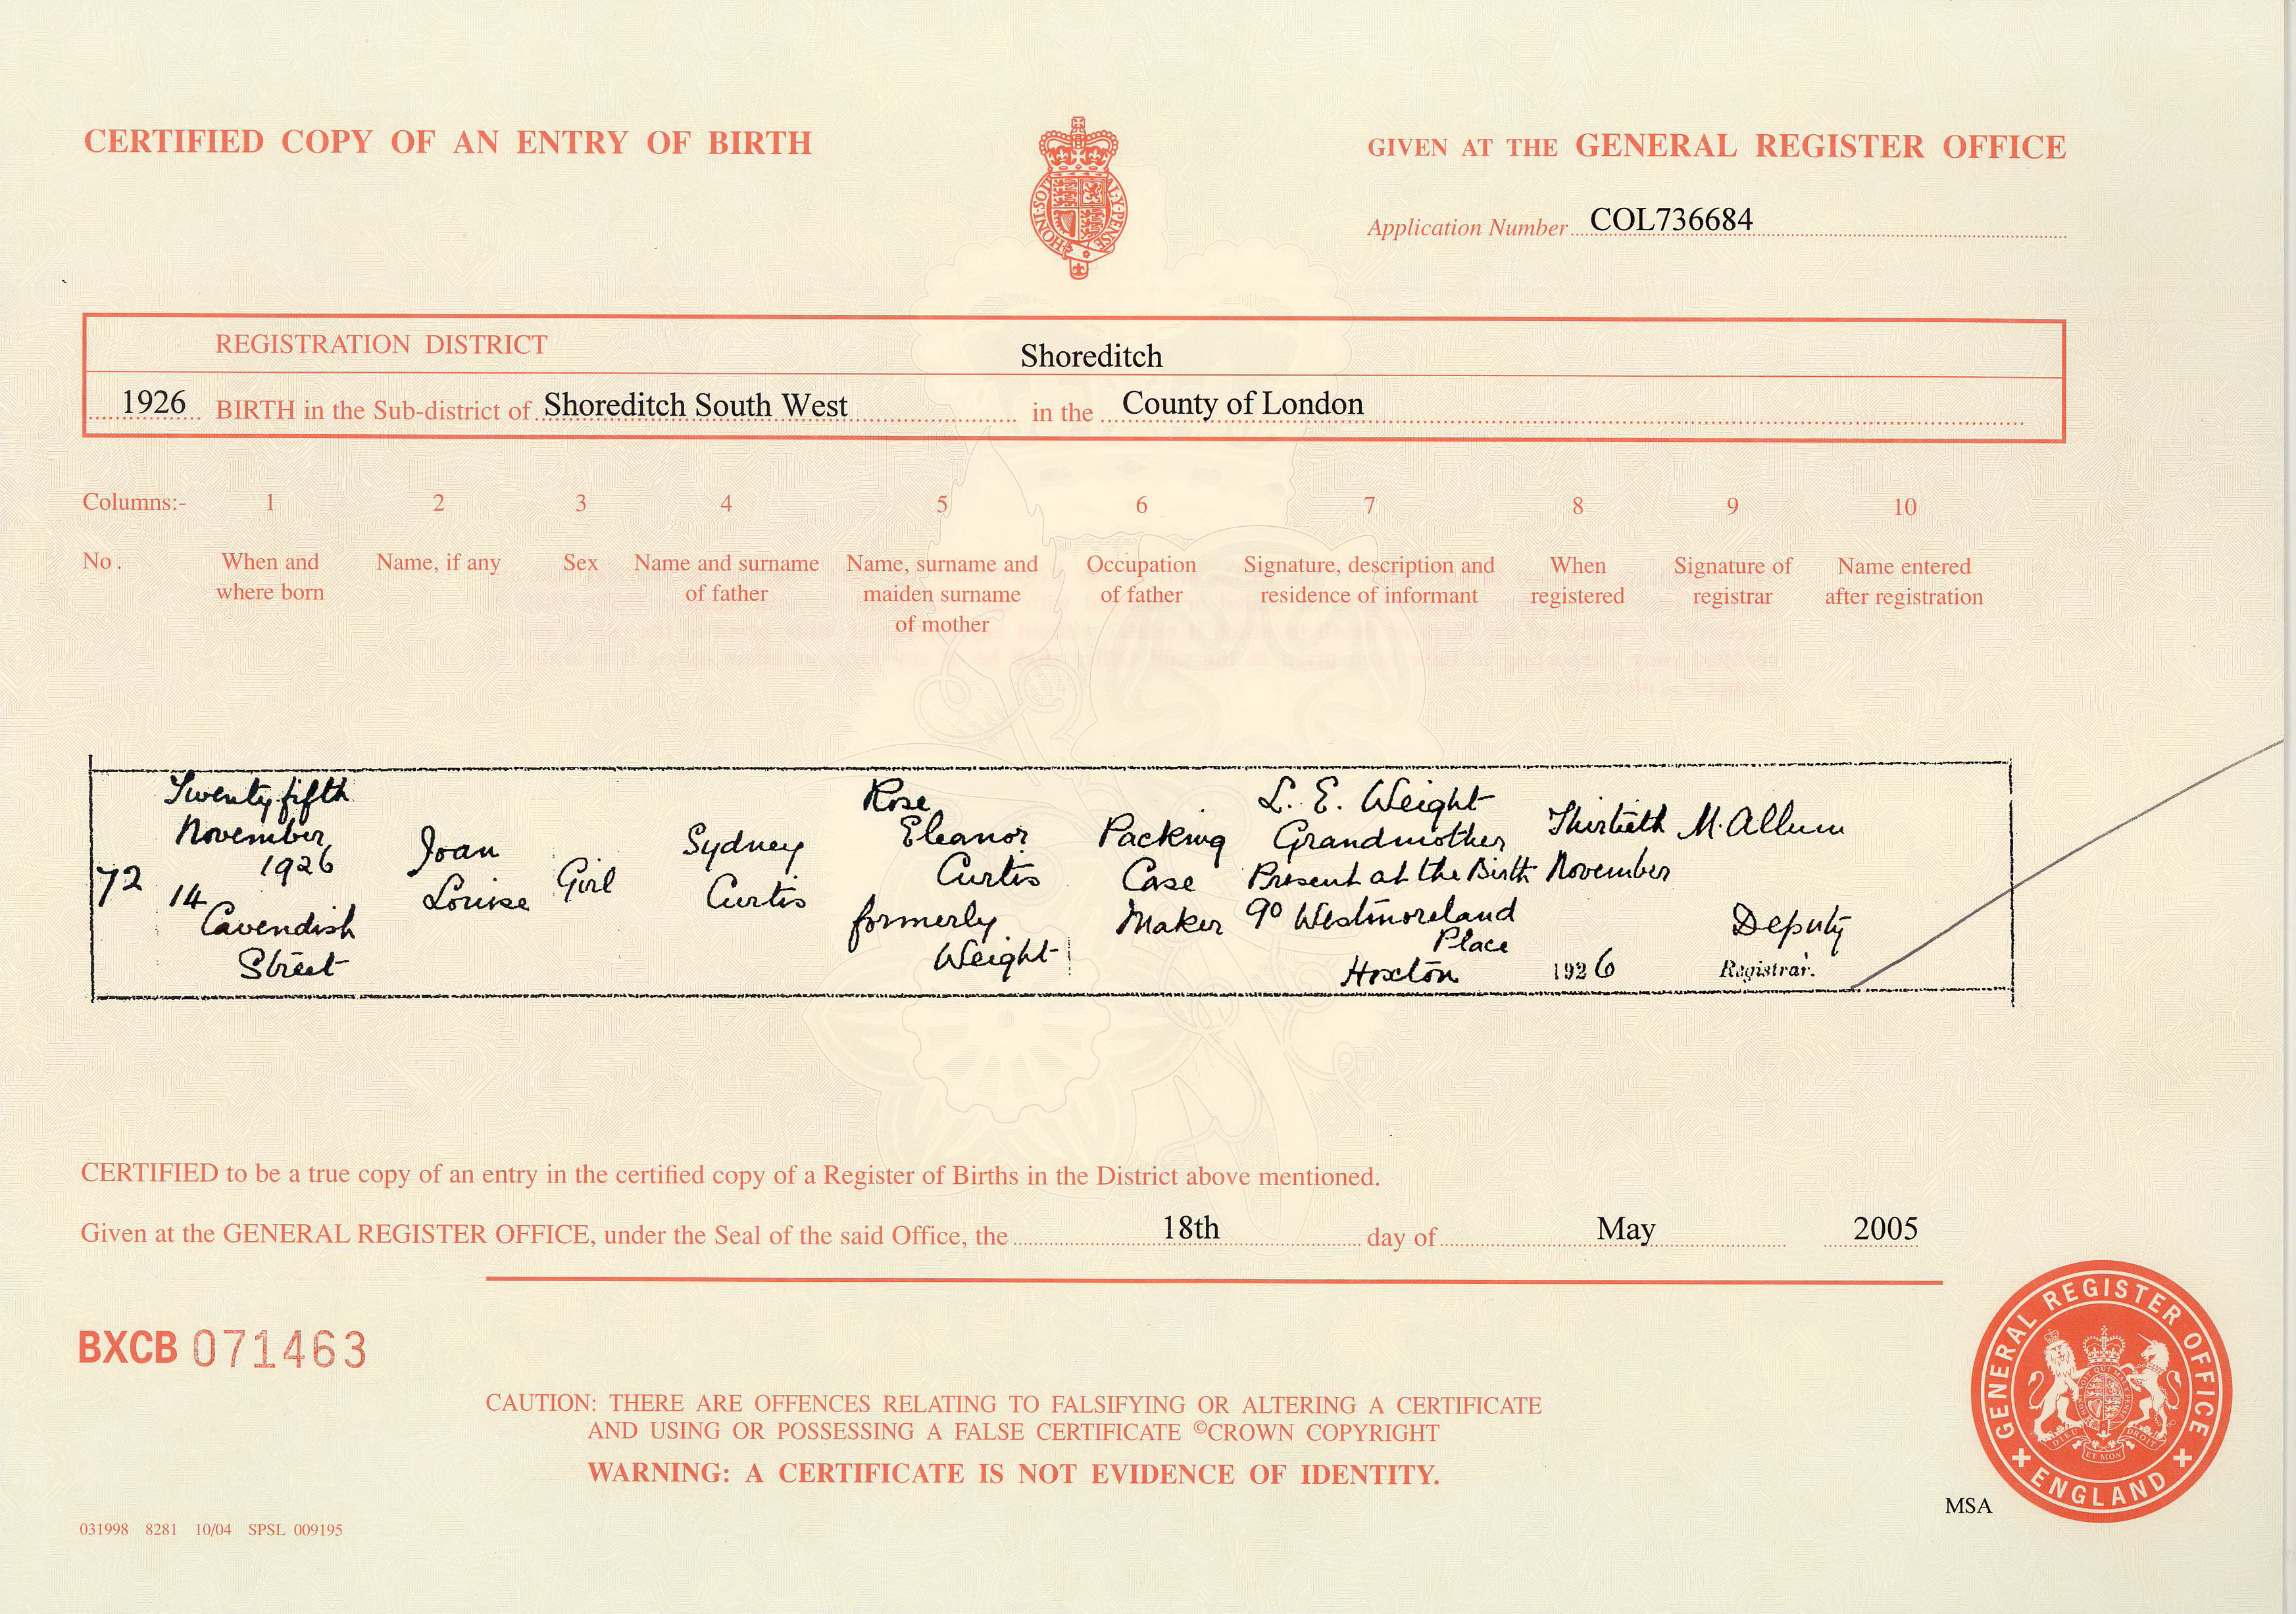 CERTIFIED COPY OF AN ENTRY OF BIRTH
GIVEN AT THE GENERAL REGISTER OFFICE
HONI·SOIT
AL·Y·PENSE
Application Number COL736684
REGISTRATION DISTRICT Shoreditch
1926 BIRTH in the Sub-district of Shoreditch South West in the County of London
Columns:- 1 2 3 4 5 6 7 8 9 10
No. When and where born
Name, if any
Sex
Name and surname
of father
Name, surname and
maiden surname
of mother
Occupation
of father
Signature, description and
residence of informant
When
registered
Signature of
registrar
Name entered
after registration
72
Twenty fifth
November
1926
14
Cavendish
Street
Joan
Louise
Girl
Sydney
Curtis
Rose
Eleanor
Curtis
formerly
Weight
Packing
Case
Maker
L. E. Weight
Grandmother
Present at the Birth
90 Westmoreland
Place
Hoxton
Thirtieth
November
1926
M. Allum
Deputy
Registrar.
CERTIFIED to be a true copy of an entry in the certified copy of a Register of Births in the District above mentioned.
Given at the GENERAL REGISTER OFFICE, under the Seal of the said Office, the 18th day of May 2005
BXCB 071463
CAUTION: THERE ARE OFFENCES RELATING TO FALSIFYING OR ALTERING A CERTIFICATE
AND USING OR POSSESSING A FALSE CERTIFICATE ©CROWN COPYRIGHT
WARNING: A CERTIFICATE IS NOT EVIDENCE OF IDENTITY.
GENERAL REGISTER OFFICE
ENGLAND
DIEU ET MON DROIT
MSA
031998 8281 10/04 SPSL 009195